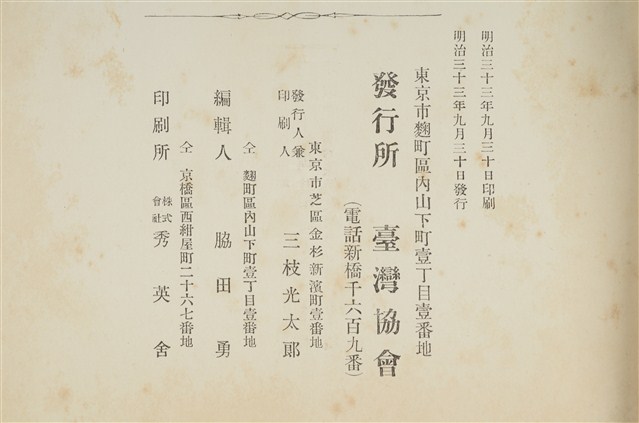 明治三十三年九月三十日印刷
明治三十三年九月三十日發行
東京市麴町區內山下町壹丁目壹番地
發行所 臺灣協會
(電話新橋千六百九番)
東京市芝區金杉新濱町壹番地
發行人兼印刷人 三枝光太郎
仝 麴町區內山下町壹丁目壹番地
編輯人 脇田勇
仝 京橋區西紺屋町二十六七番地
印刷所 株式會社 秀英舍